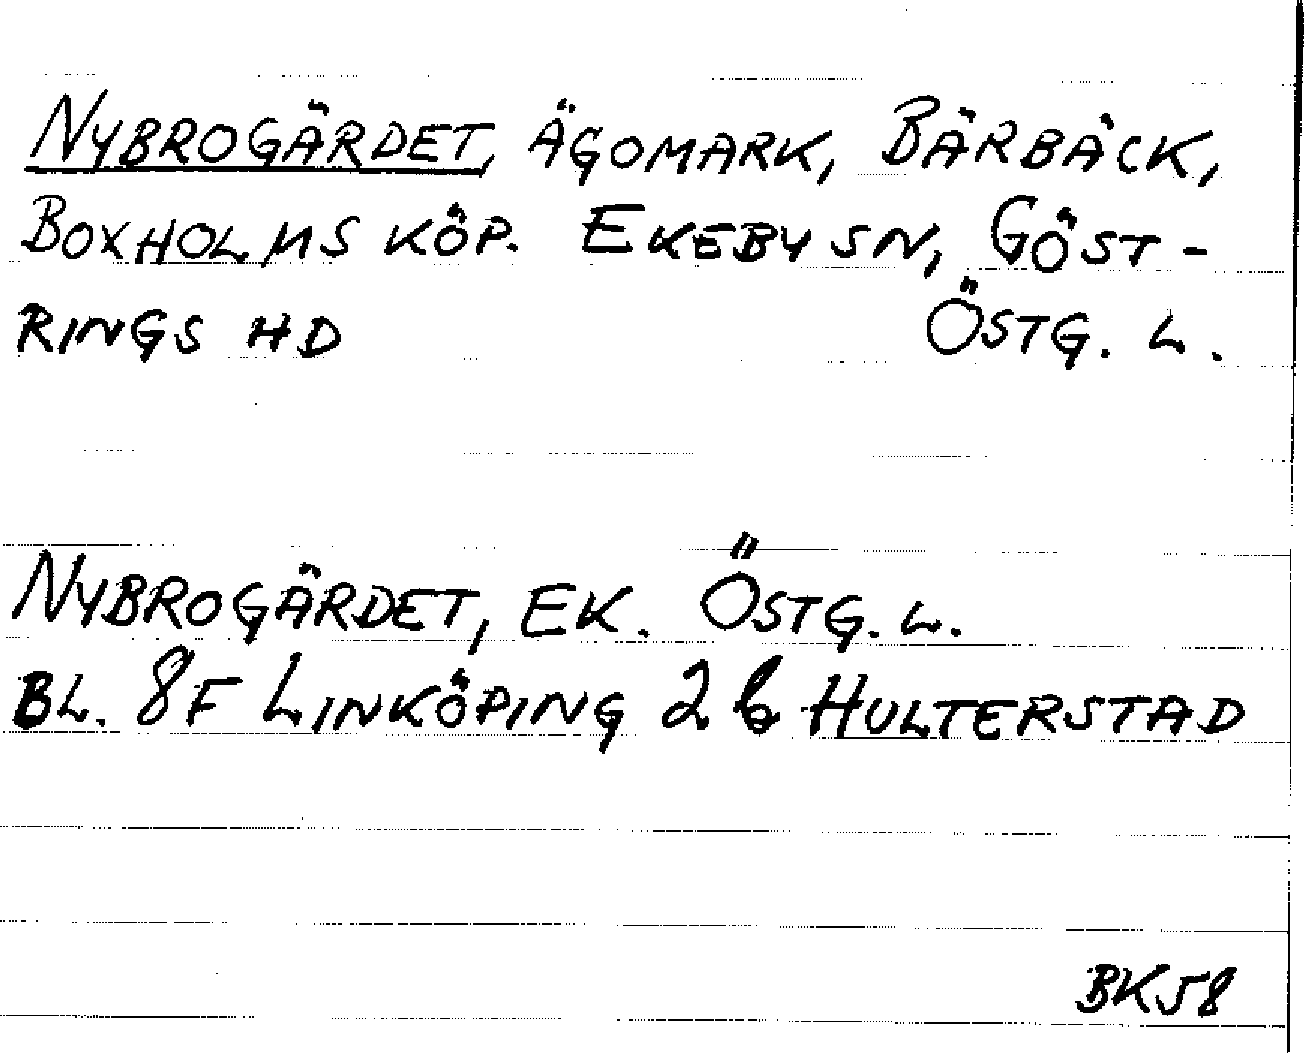 NYBROGÄRDET, ÄGOMARK, BÄRBÄCK,
BOXHOLMS KÖP. EKEBY SN, GÖST-
RINGS HD ÖSTG. L.
NYBROGÄRDET, EK. ÖSTG. L.
BL. 8F LINKÖPING 2 b HULTERSTAD
BK58